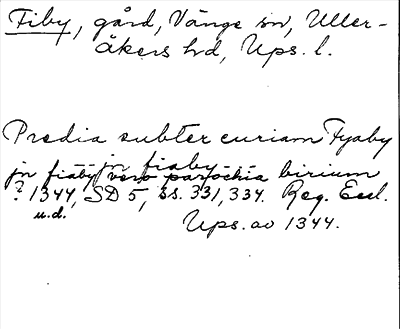 Fiby, gård, Vänge sn, Uller-
åkers hd, Ups. l.
Predia subter curiam Fyaby
jn fiaby
jn fiaby vero parochia birium
? 1344, SD 5, ss. 331, 334. Reg. Eccl.
u.d.
Ups. av 1344.